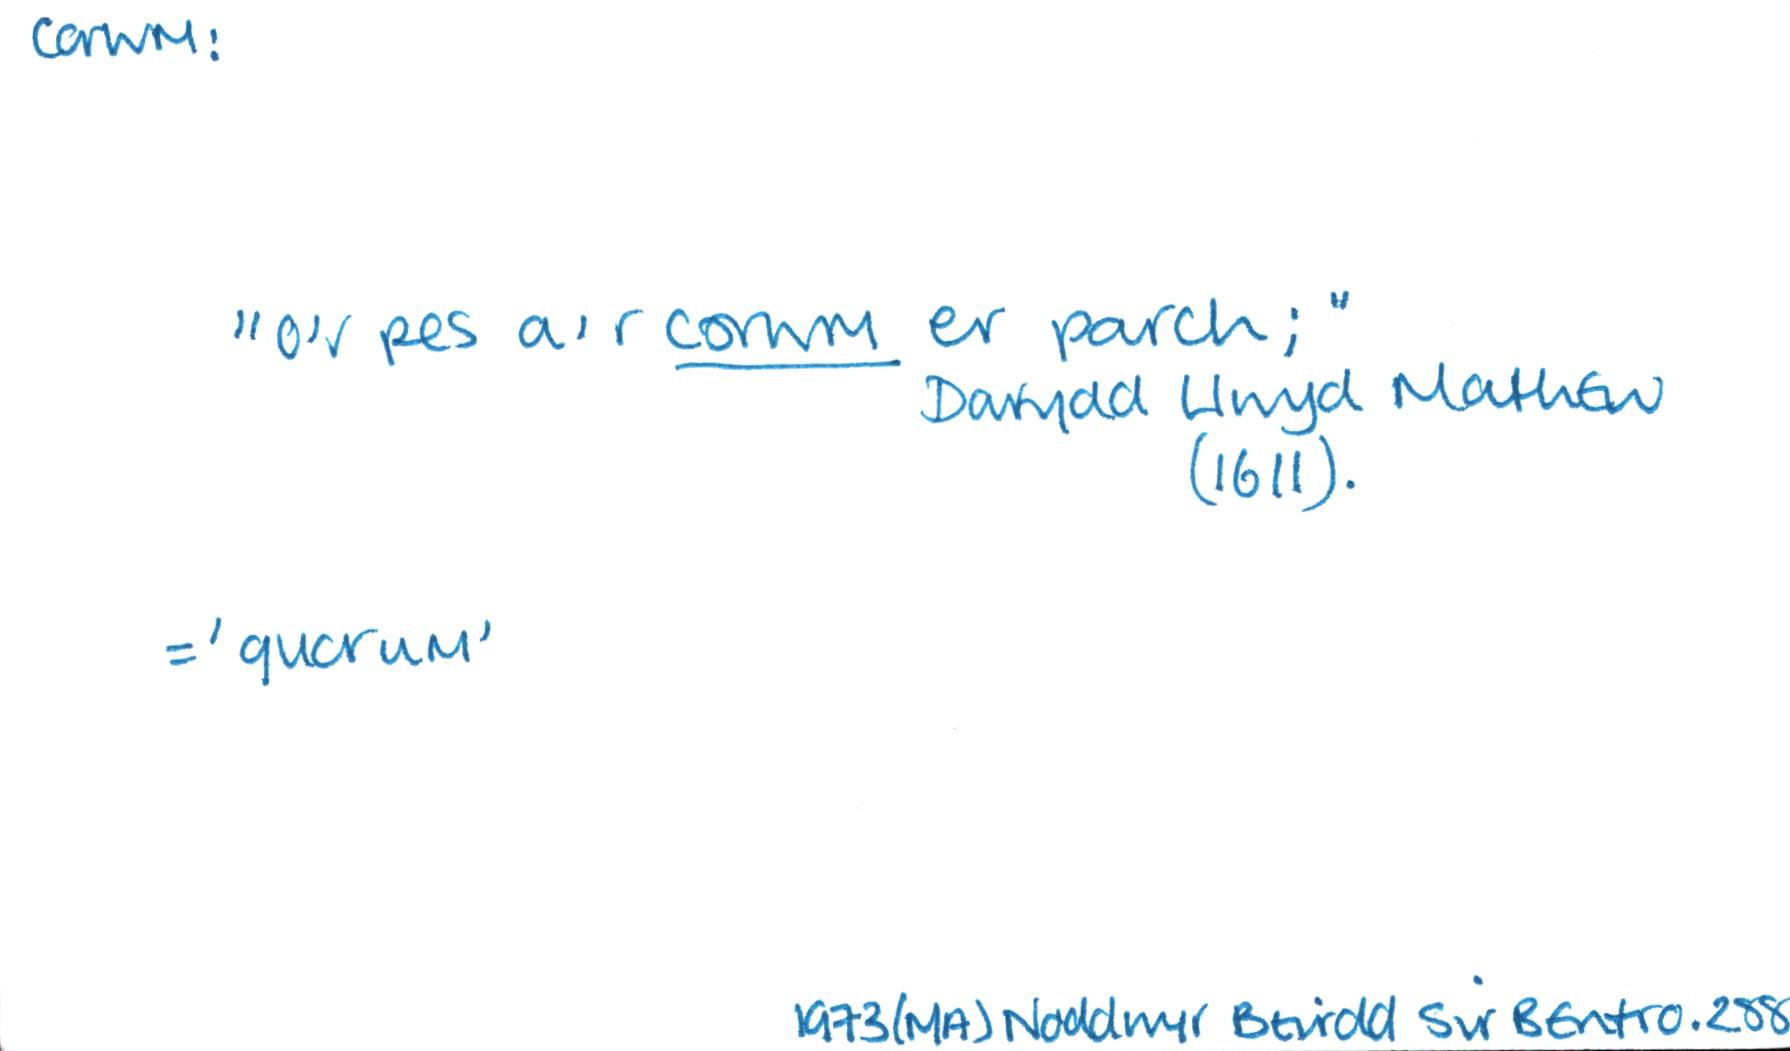 corwm:
"o'r pes a'r corwm er parch;"
Dafydd Llwyd Mathew
(1611).
='quorum'
1973(MA) Noddwyr Beirdd Sir Benfro. 288